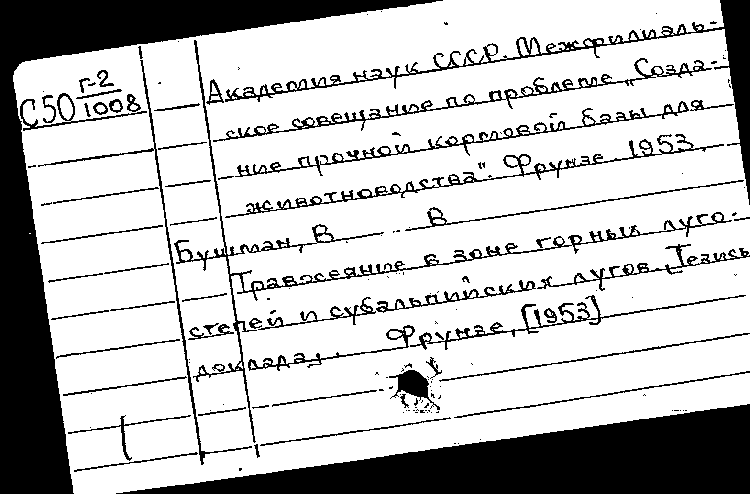 С50 Г-2/1008
Академия наук СССР. Межфилиаль-
ское совещание по проблеме „Созда-
ние прочной кормовой базы для
животноводства". Фрунзе. 1953.
Бушман, В. В
Травосеяние в зоне горных луго-
степей и субальпийских лугов. [Тезисы
доклада]. Фрунзе, [1953]